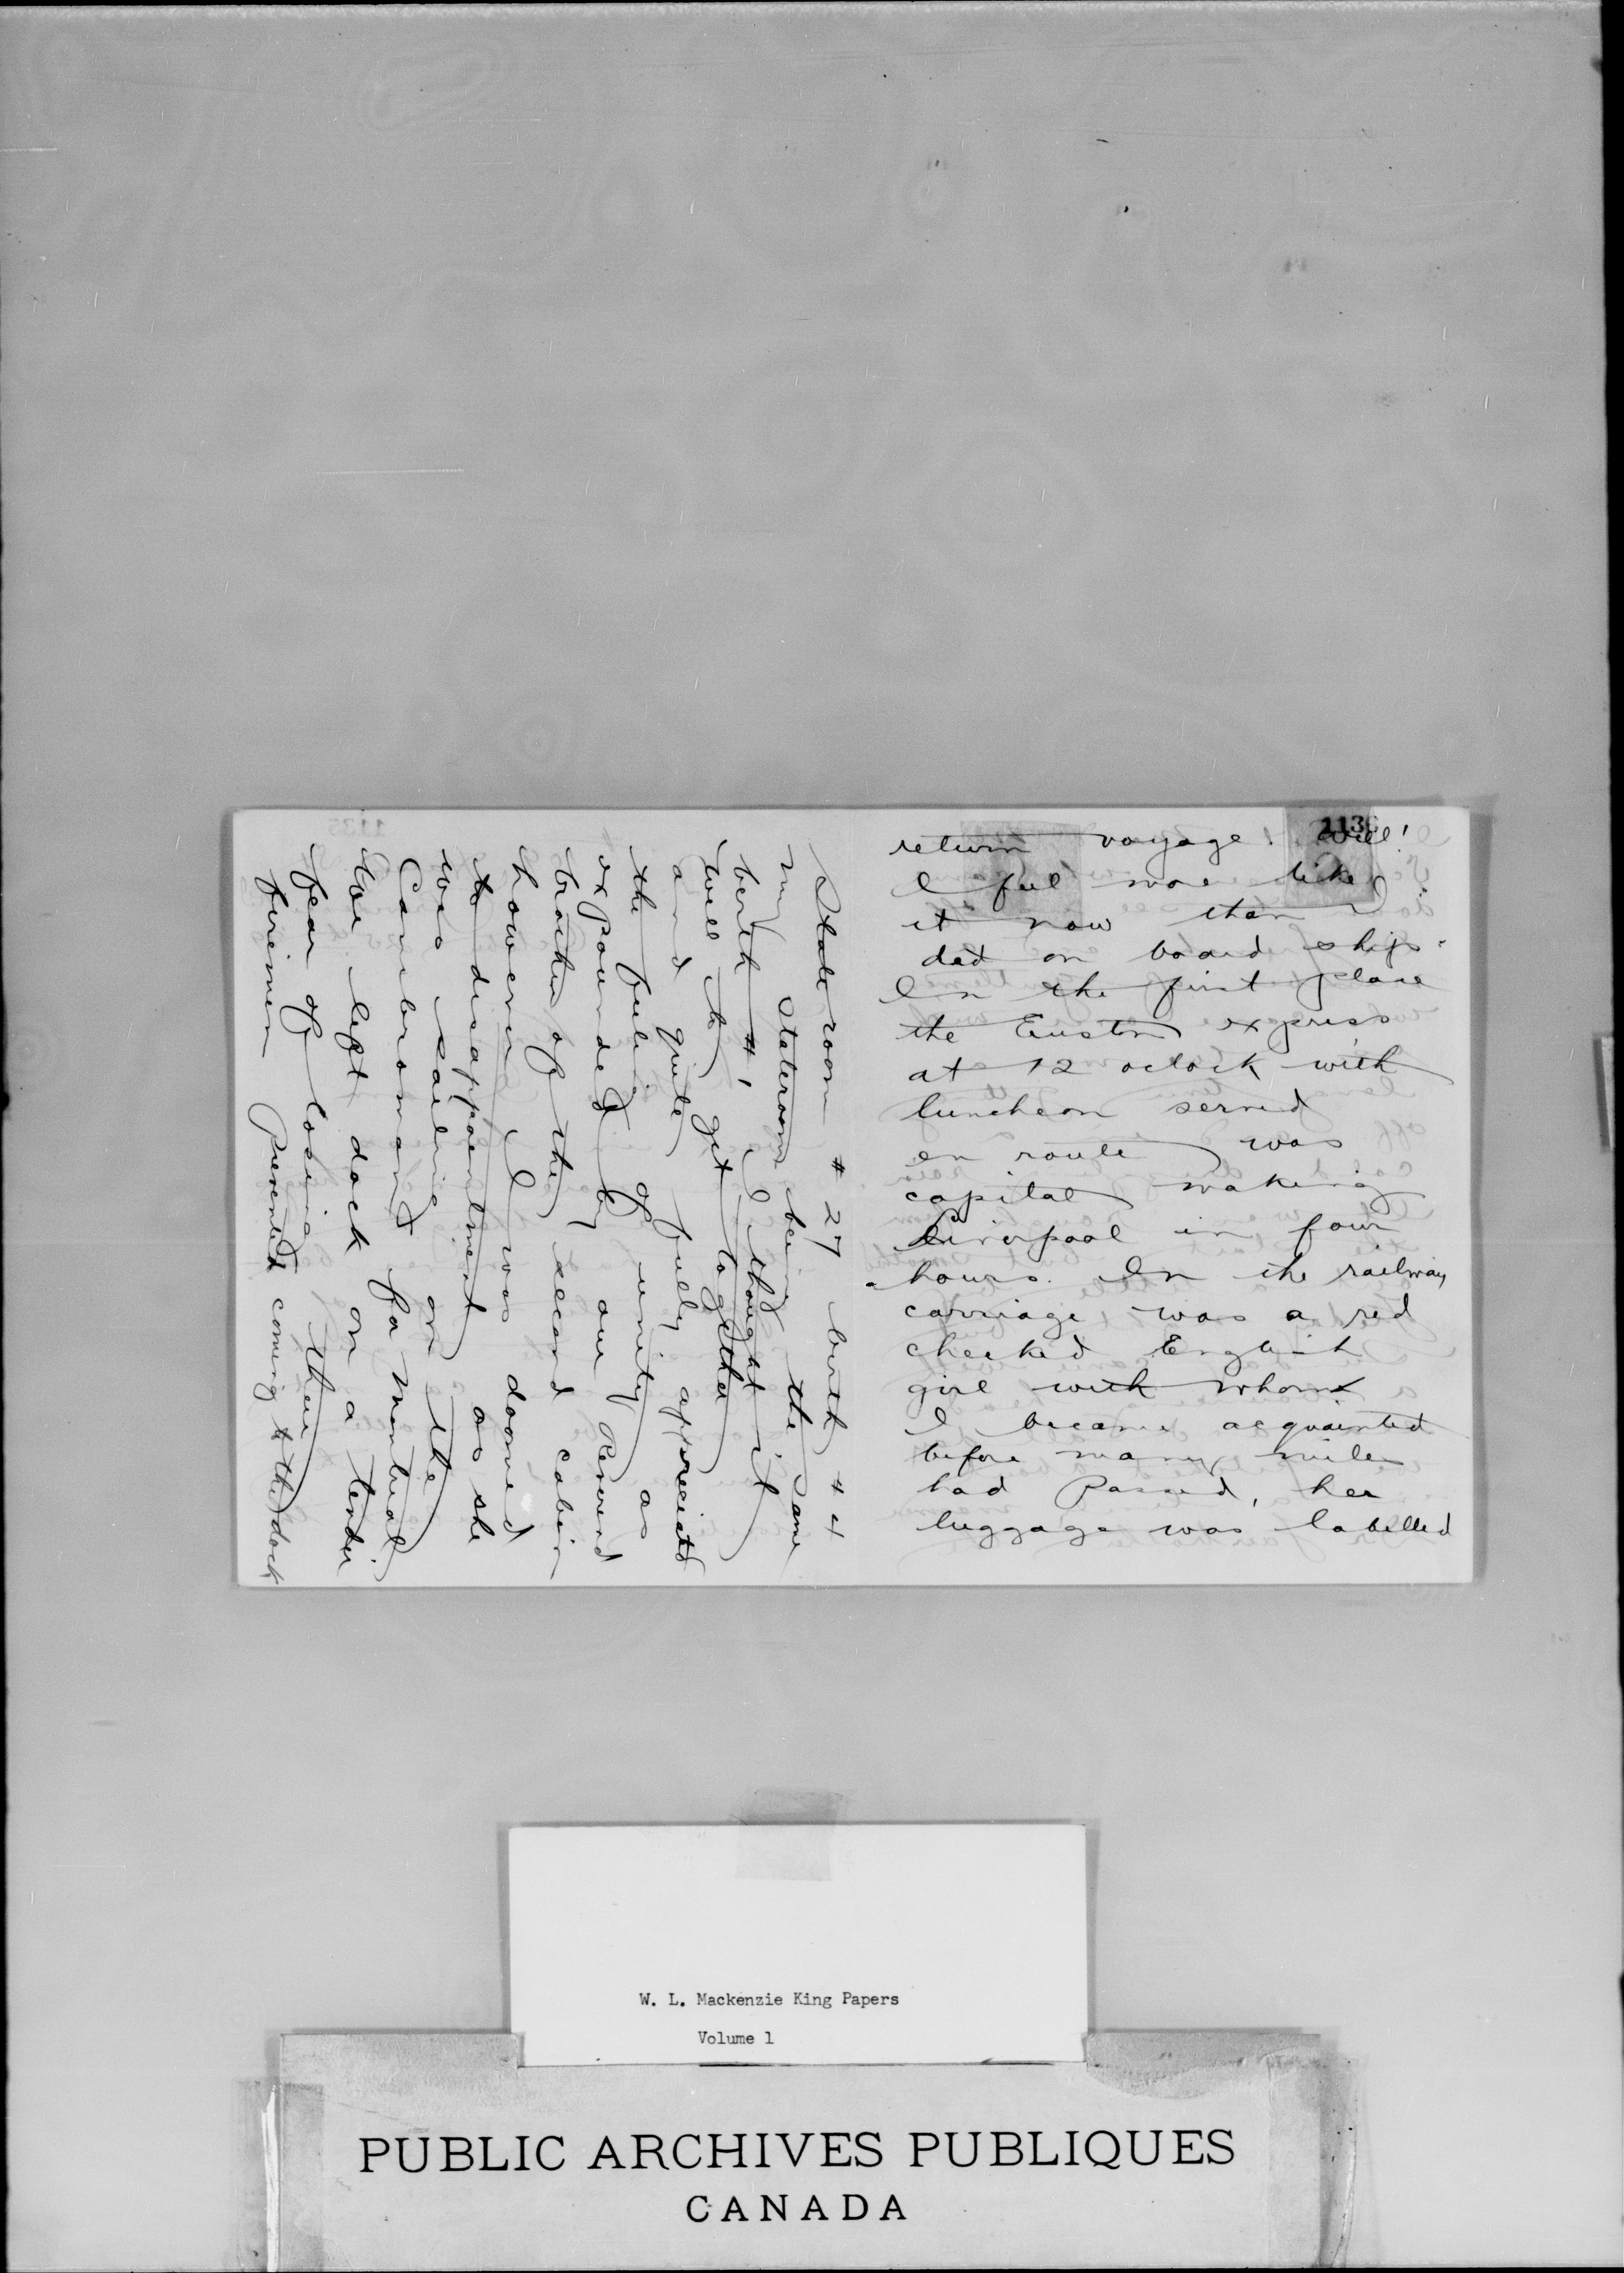 1136
return voyage! Well!
I feel more like
it now than I
did on board ship.
In the first place
the Euston express
at 12 oclock with
luncheon served
en route was
capital making
Liverpool in four
hours. In the railway
carriage was a red
cheeked English
girl with whom
I became acquainted
before many miles
had passed, her
luggage was labelled
State room # 27 birth # 4
my stateroom being the same
berth # 1 I thought if
will to get together
and quite fully appreciated
the feeling of unity as
expounded by our Reverend
brother of the second cabin
however I was doomed
to disappointment as she
was sailing on the
Cambroman for Montreal
We left dock on a tender
fear of losing their
firemen prevented coming to the dock
W. L. Mackenzie King Papers
Volume 1
PUBLIC ARCHIVES PUBLIQUES
CANADA